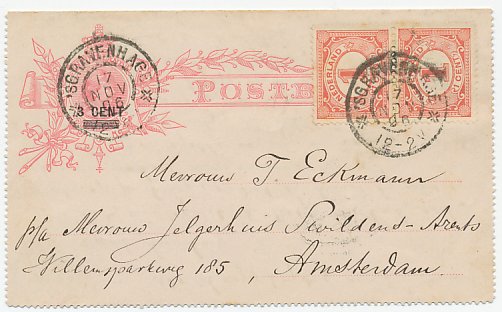 'SGRAVENHAGE
7
NOV
96
3 CENT
POSTB
NEDERLAND
1
1
CENT
'SGRAVENHAGE
7
NOV
96
12-2V
Mevrouw T. Eckmann
p/a Mevrouw Jelgerhuis Swildens-Arents
Willemsparkweg 185, Amsterdam.